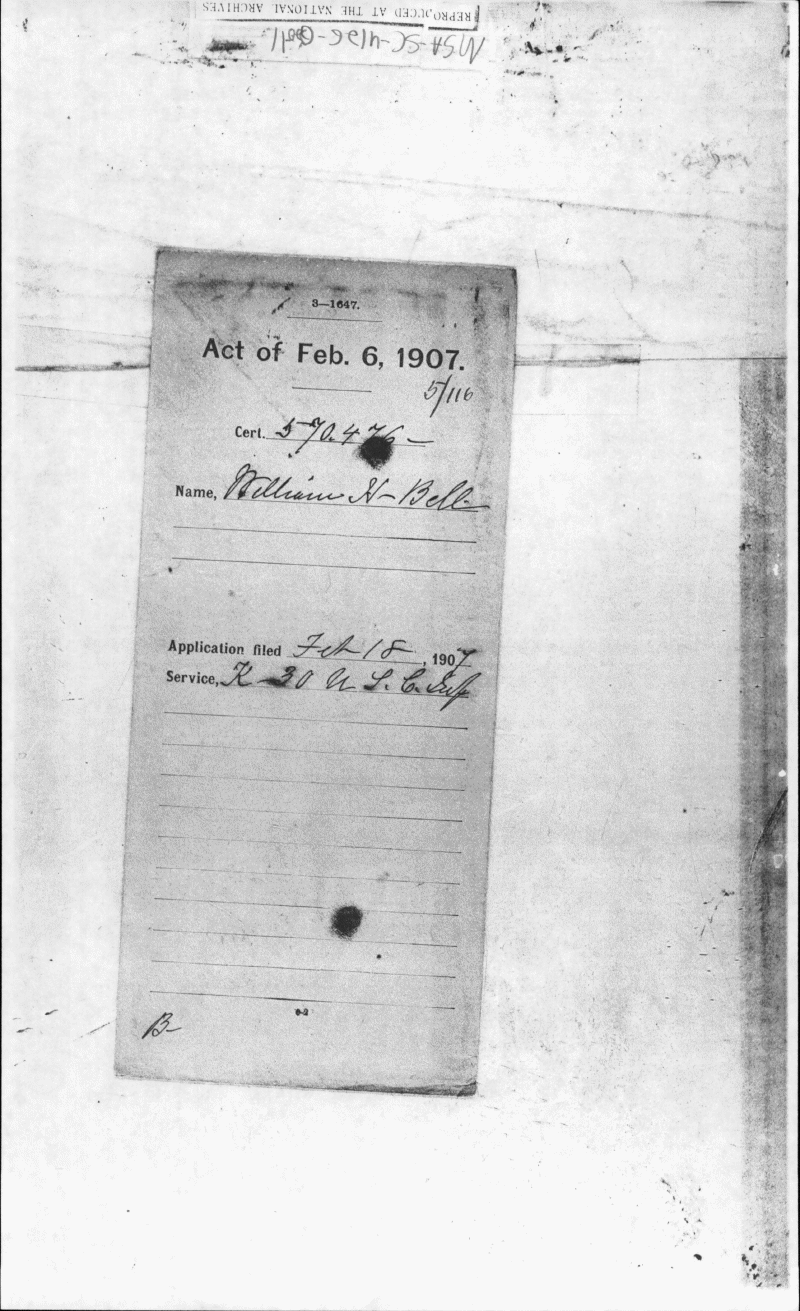 REPRODUCED AT THE NATIONAL ARCHIVES
MSA-SC-4126-
3—1647.
Act of Feb. 6, 1907.
5/116
Cert. 570.476—
Name, William H— Bell
Application filed Feb 18, 1907
Service, K—30 U S. C. Inf
6-2
B—